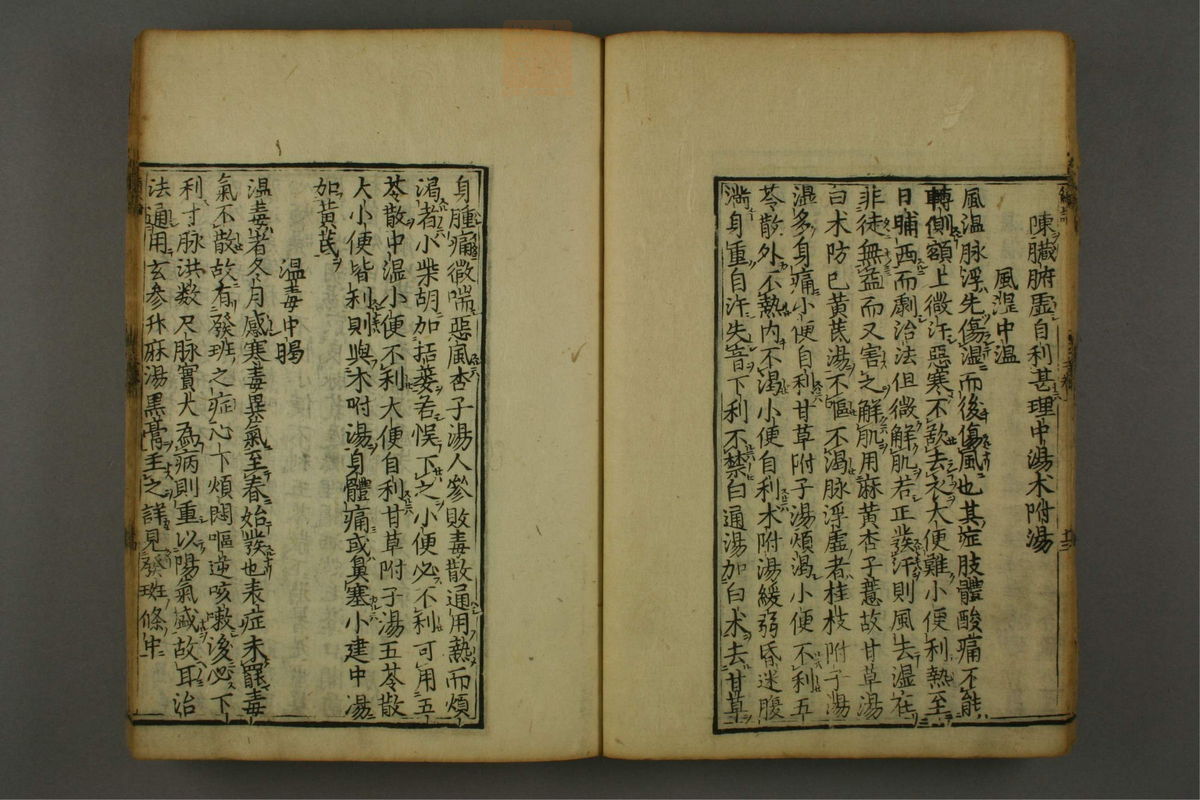 陳臓腑虚自利甚理中湯朮附湯
風湿中温
風温脉浮先傷温而後傷風也其症肢體酸痛不能
轉側額上微汗惡寒不欲去衣大便難小便利熱至
日晡西而劇治法但微解肌若正發汗則風去湿在
非徒無益而又害之解肌用麻黄杏子薏故甘草湯
白朮防已黄茋湯不嘔不渇脉浮虚者桂枝附子湯
温多身痛小便自利甘草附子湯煩渇小便不利五
苓散外不熱内不渇小便自利朮附湯緩弱昏迷腹
満身重自汗失音下利不禁白通湯加白朮去甘草
身腫痛微喘惡風杏子湯人參敗毒散通用熱而煩
渇者小柴胡加括蔞若悮下之小便必不利可用五
苓散中温小便不利大便自利甘草附子湯五苓散
大小便皆利則與朮附湯身體痛或鼻塞小建中湯
如黄茋
温毒中暍
温毒者冬月感寒毒異氣至春始發也表症未罷毒
氣不散故有發班之症心下煩悶嘔逆咳嗽後必下
利寸脉洪数尺脉實大為病則重以陽氣盛故耳治
法通用玄参升麻湯黒膏主之詳見發班條中